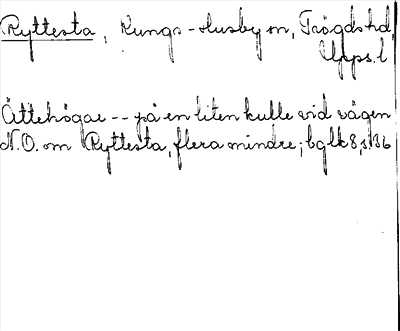 Ryttesta, Kungs-Husby sn, Trögds hd,
Upps. l
Ättehögar -- på en liten kulle vid vägen
N.O. om Ryttesta, flera mindre; bglk 8, s. 136